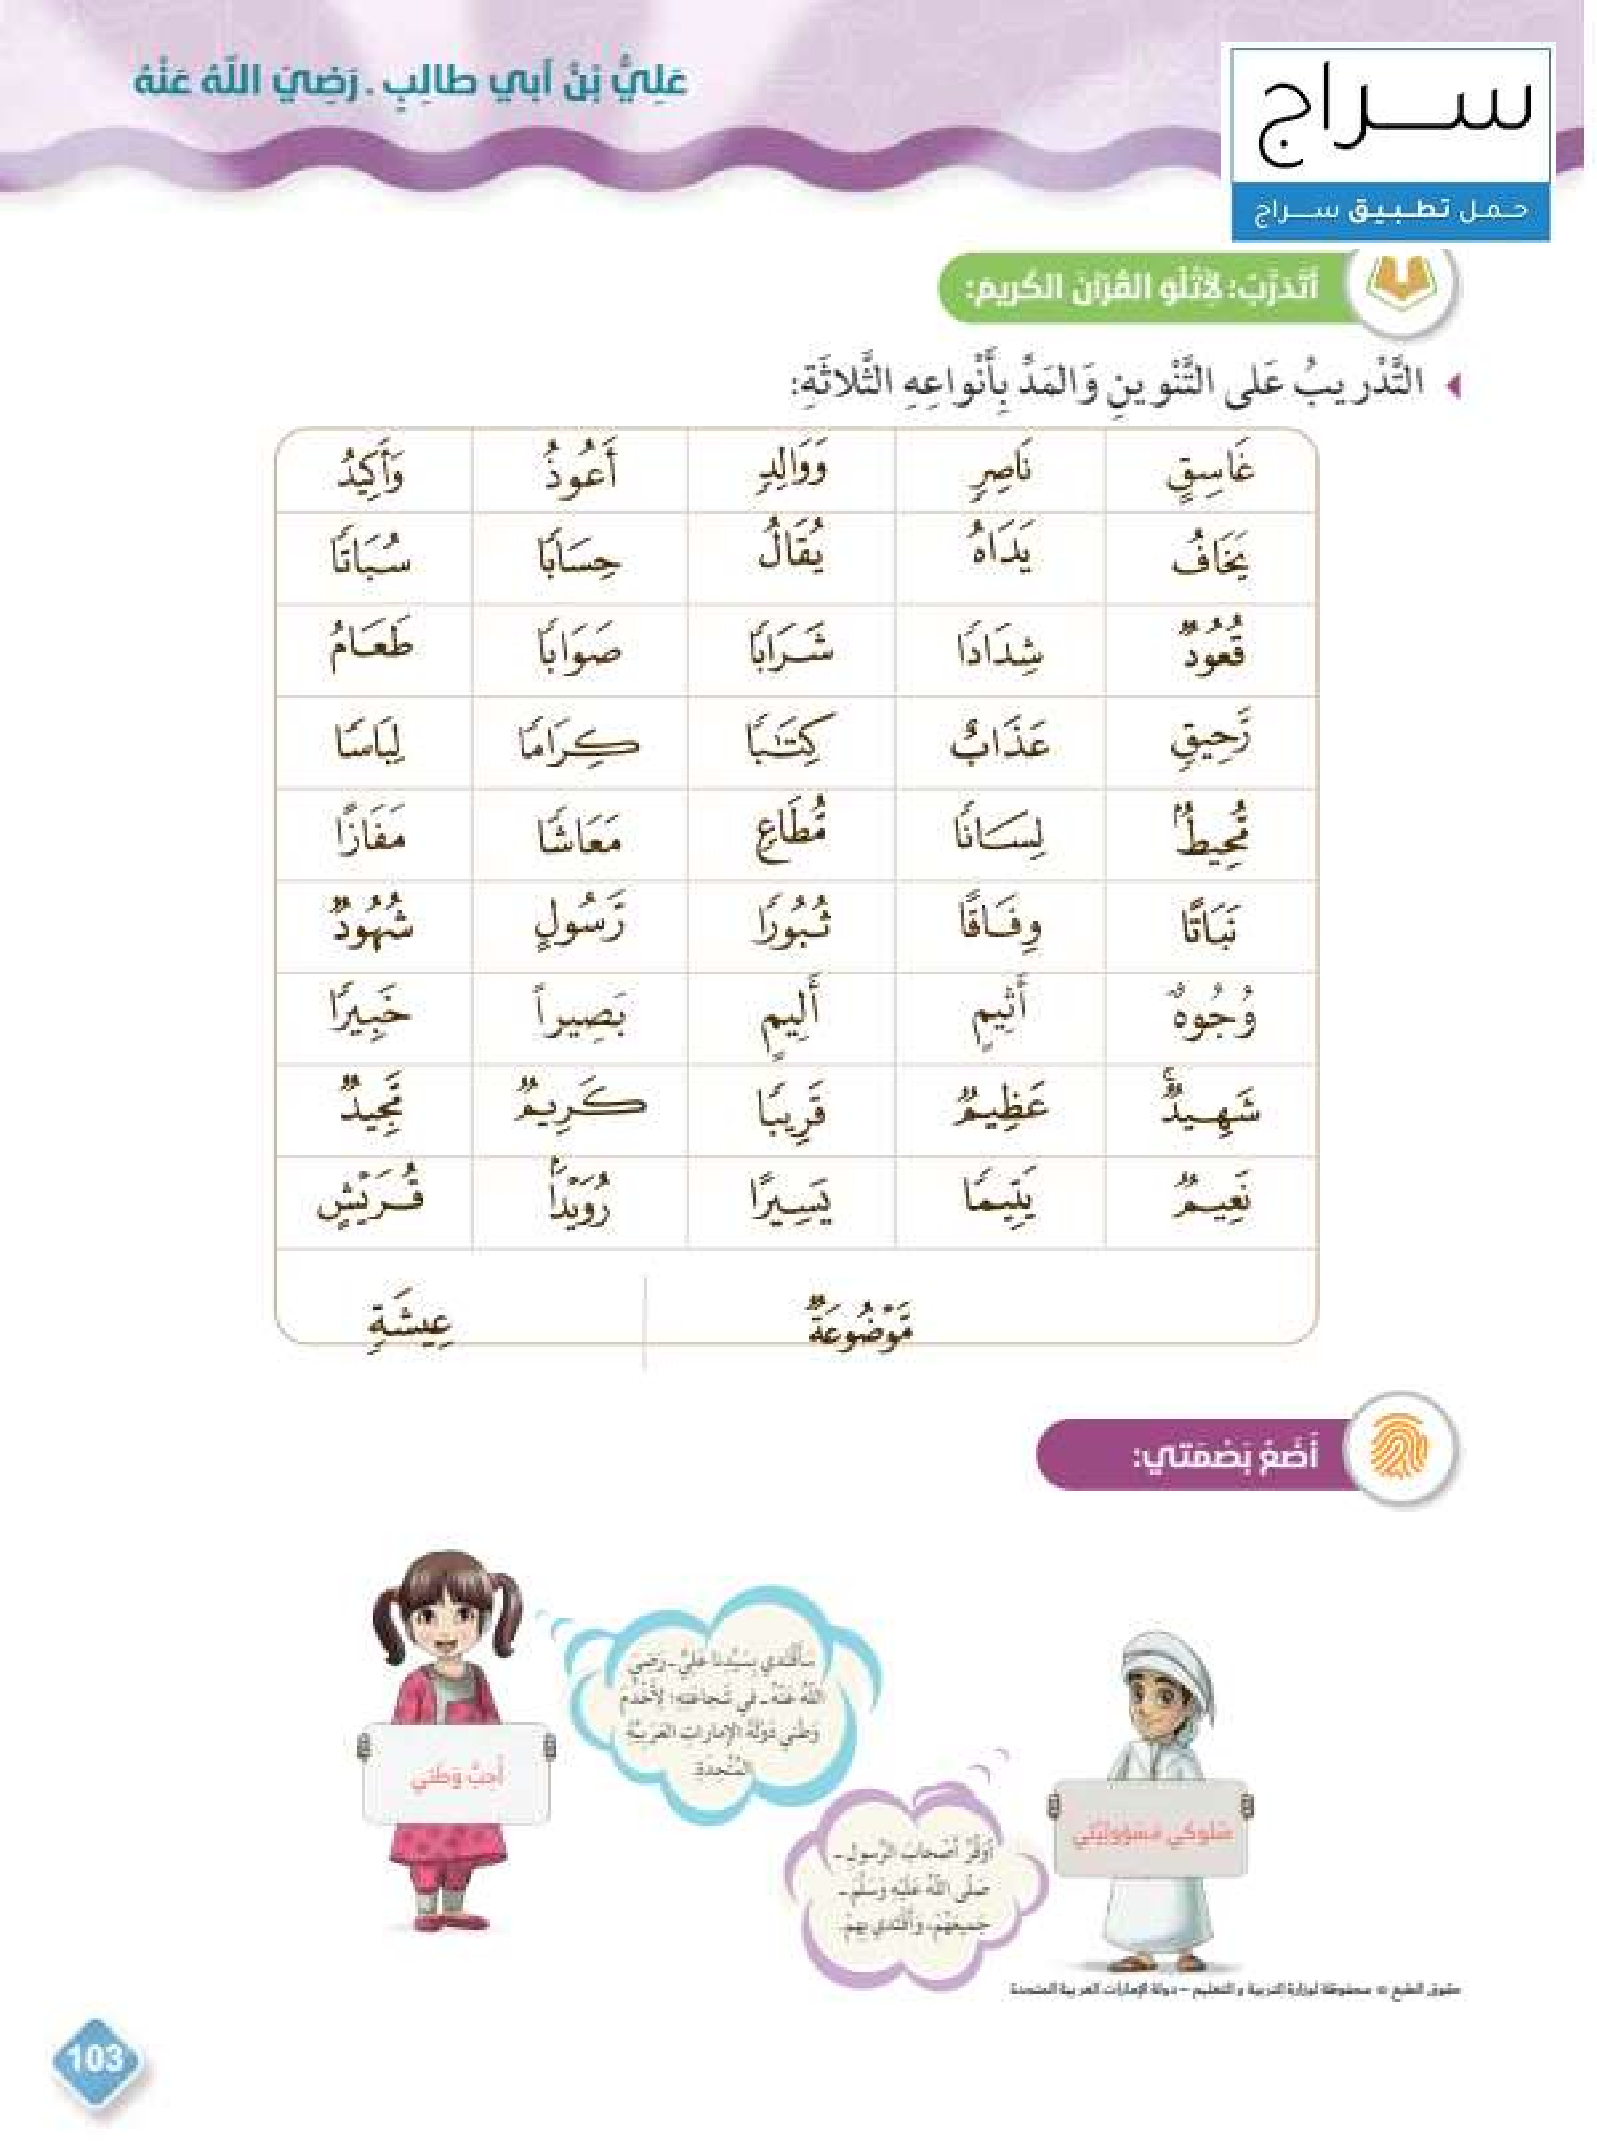 عَلِيُّ بْنُ أَبي طالِبٍ . رَضِيَ اللّهُ عَنْهُ
سراج
حمل تطبيق سراج
أَتَدَرَّبُ؛ لِأَتْلُوَ القُرْآنَ الكَريمَ:
التَّدْريبُ عَلى التَّنْوينِ وَالمَدِّ بِأَنْواعِهِ الثَّلاثَةِ:
غَاسِقٍ نَاصِرٍ وَوَالِدٍ أَعُوذُ وَأَكِيدُ
يَخَافُ يَدَاهُ يُقَالُ حِسَابًا سُبَاتًا
قُعُودٌ شِدَادًا شَرَابًا صَوَابًا طَعَامُ
رَّحِيقٍ عَذَابٌ كِتَٰبًا كِرَامًا لِبَاسًا
مُّحِيطٌ لِسَانًا مُّطَاعٍ مَعَاشًا مَفَازًا
نَبَاتًا وِفَاقًا ثُبُورًا رَسُولٍ شُهُودٌ
وُجُوهٌ أَثِيمٍ أَلِيمٍ بَصِيراً خَبِيرًا
شَهِيدٌ عَظِيمٌ قَرِيبًا كَرِيمٌ مَّجِيدٌ
نَعِيمٌ يَتِيمًا يَسِيرًا رُوَيْدًا قُرَيْشٍ
مَّوْضُوعَةٌ عِيشَةٍ
أَضَعُ بَصْمَتي:
سَأَقْتَدي بِسَيِّدِنا عَلِيٍّ ـ رَضِيَ
اللّهُ عَنْهُ ـ في شَجاعَتِهِ؛ لِأَخْدُمَ
وَطَني دَوْلَةَ الإِماراتِ العَرَبِيَّةِ
المُتَّحِدَةِ.
أُحِبُّ وَطَني
سُلوكي مَسْؤوليَّتي
أُوَقِّرُ أَصْحابَ الرَّسولِ ـ
صَلّى اللّهُ عَلَيْهِ وَسَلَّمَ ـ
جَميعَهُمْ، وَأَقْتَدي بِهِمْ.
حقوق الطبع © محفوظة لوزارة التربية و التعليم – دولة الإمارات العربية المتحدة
103